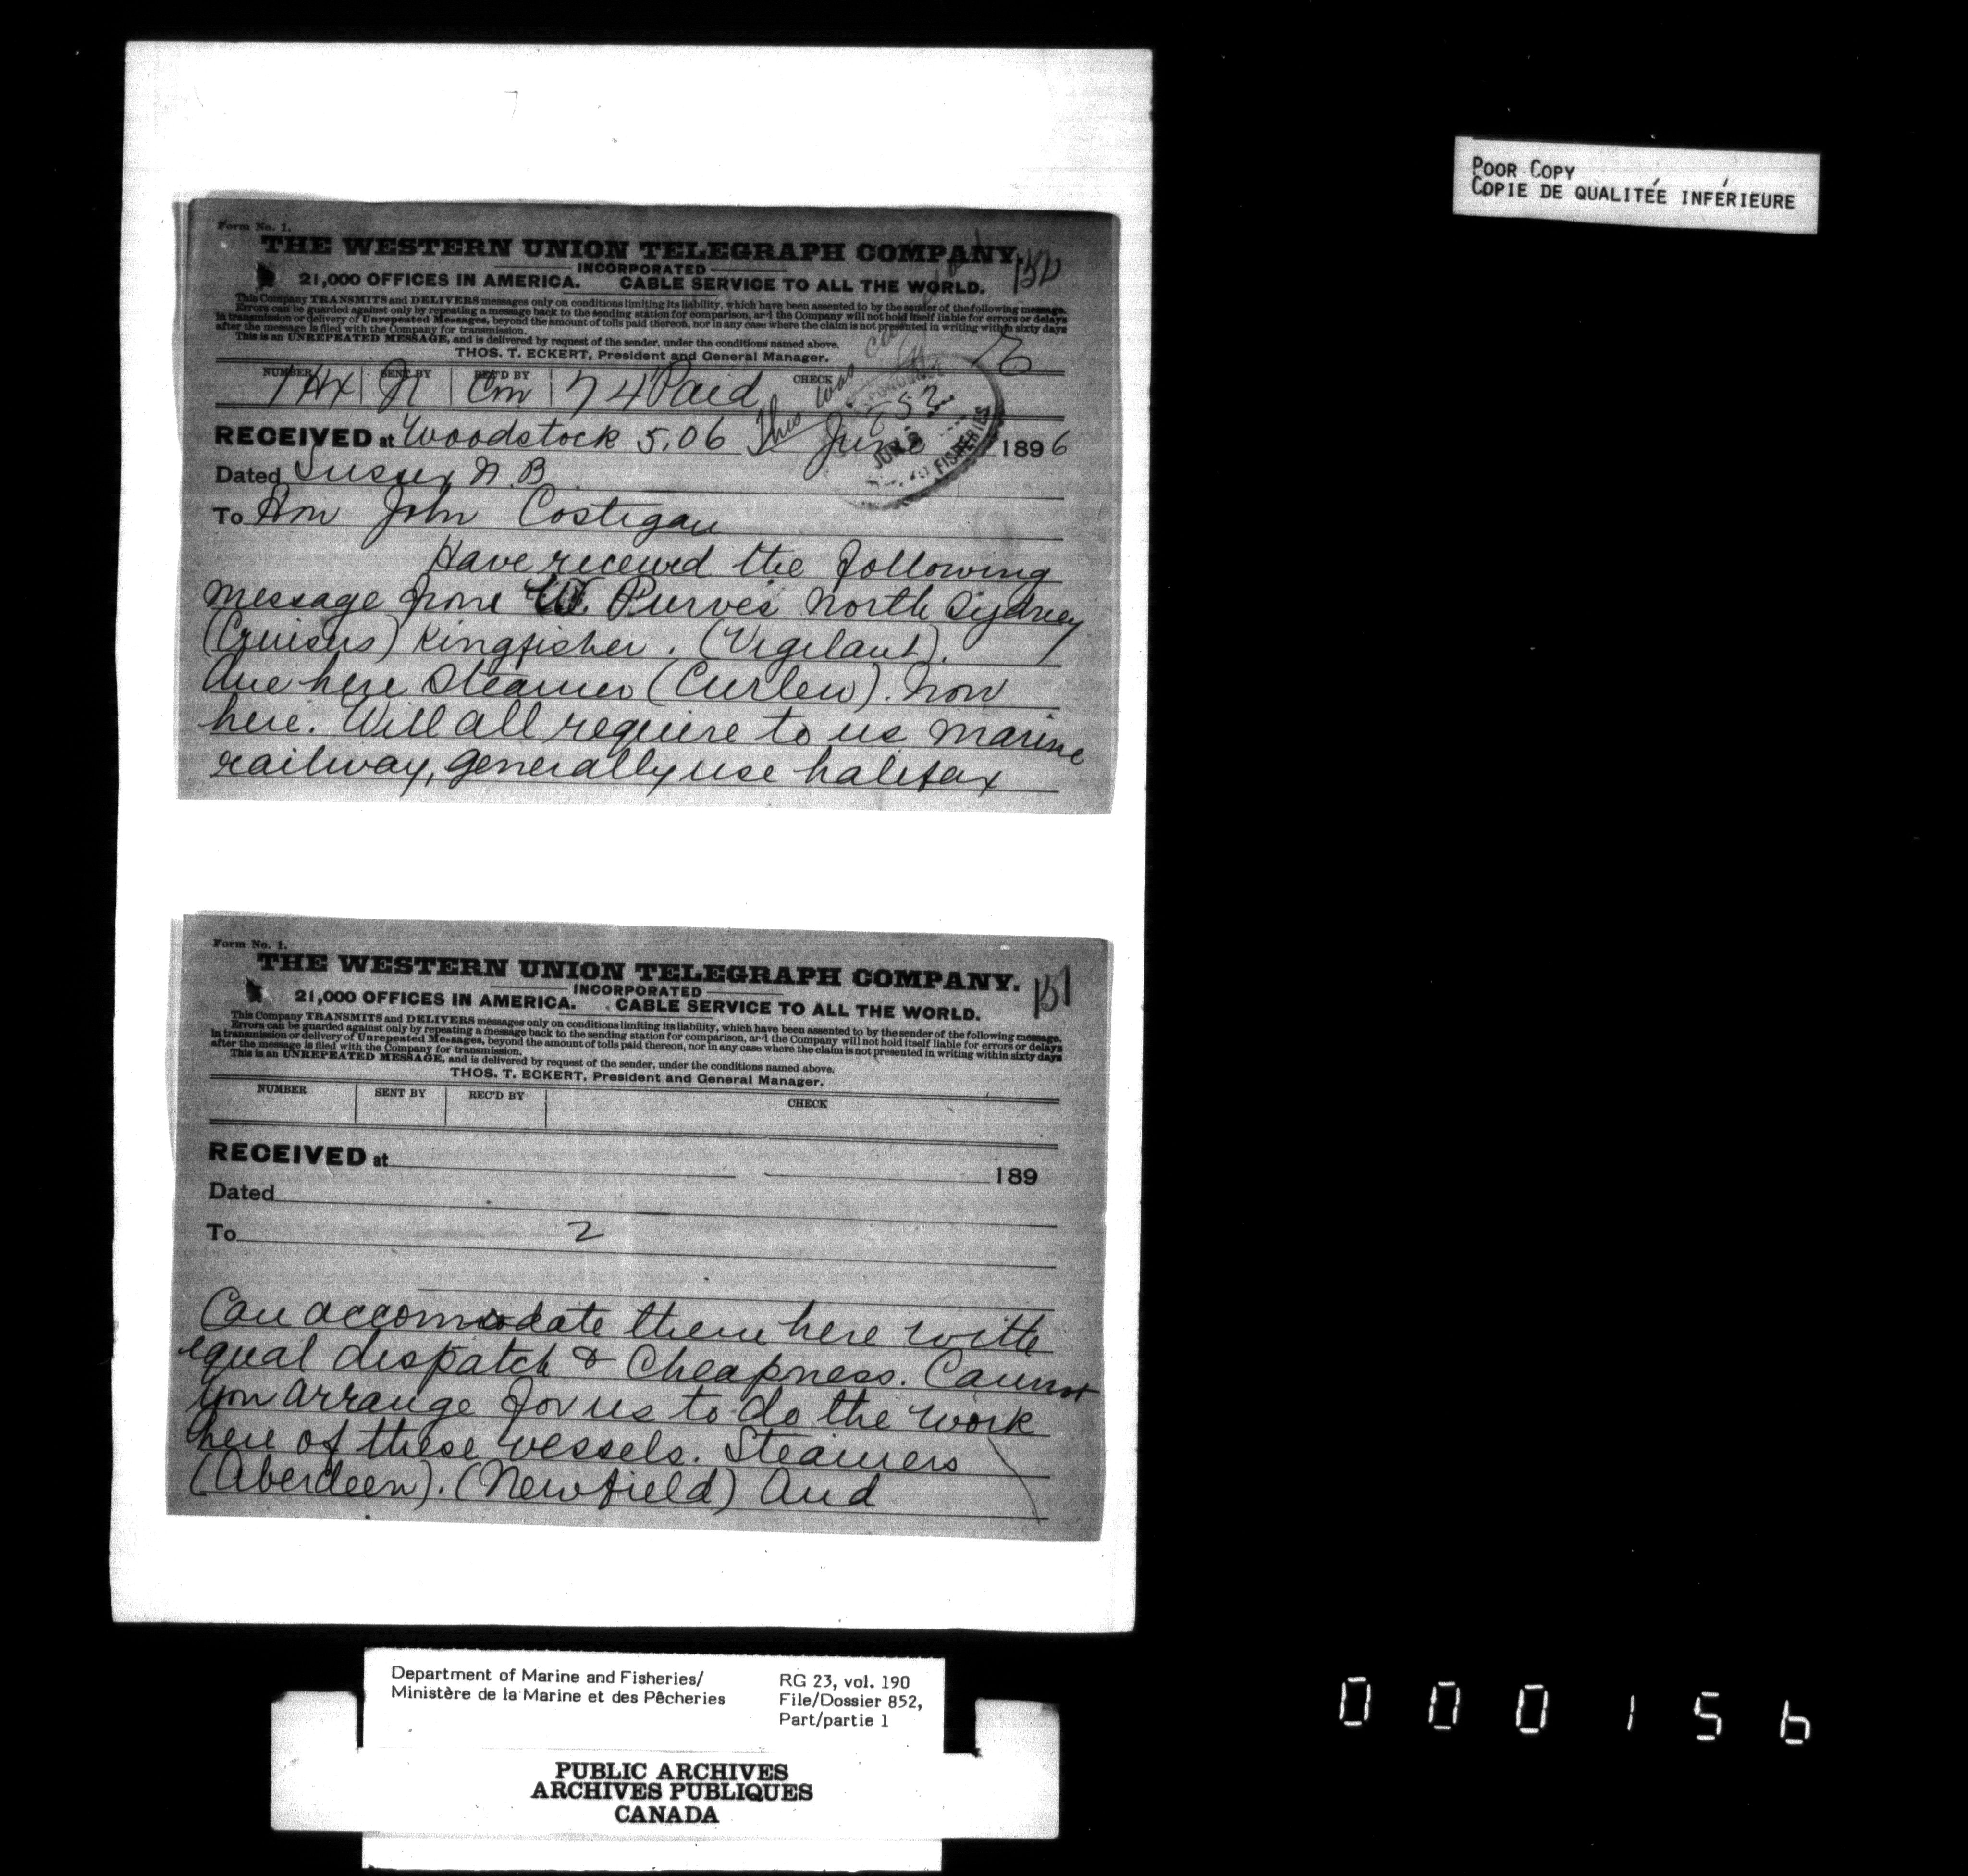 POOR COPY
COPIE DE QUALITÉE INFÉRIEURE
Form No. 1.
THE WESTERN UNION TELEGRAPH COMPANY.
INCORPORATED
21,000 OFFICES IN AMERICA. CABLE SERVICE TO ALL THE WORLD.
This Company TRANSMITS and DELIVERS messages only on conditions limiting its liability, which have been assented to by the sender of the following message.
Errors can be guarded against only by repeating a message back to the sending station for comparison, and the Company will not hold itself liable for errors or delays
in transmission or delivery of Unrepeated Messages, beyond the amount of tolls paid thereon, nor in any case where the claim is not presented in writing within sixty days
after the message is filed with the Company for transmission.
This is an UNREPEATED MESSAGE, and is delivered by request of the sender, under the conditions named above.
THOS. T. ECKERT, President and General Manager.
NUMBER SENT BY REC'D BY CHECK
Cm 74 Paid
This was
RECEIVED at Woodstock 5.06 June 1896
JUN
FISHERIES
Dated Sussex N.B
To Hon John Costigan
Have received the following
message from W. Purves North Sydney
(Cruisers) Kingfisher. (Vigilant).
due here Steamer (Curlew). now
here. Will all require to us marine
railway, generally use halifax
Form No. 1.
THE WESTERN UNION TELEGRAPH COMPANY.
151
INCORPORATED
21,000 OFFICES IN AMERICA. CABLE SERVICE TO ALL THE WORLD.
This Company TRANSMITS and DELIVERS messages only on conditions limiting its liability, which have been assented to by the sender of the following message.
Errors can be guarded against only by repeating a message back to the sending station for comparison, and the Company will not hold itself liable for errors or delays
in transmission or delivery of Unrepeated Messages, beyond the amount of tolls paid thereon, nor in any case where the claim is not presented in writing within sixty days
after the message is filed with the Company for transmission.
This is an UNREPEATED MESSAGE, and is delivered by request of the sender, under the conditions named above.
THOS. T. ECKERT, President and General Manager.
NUMBER SENT BY REC'D BY CHECK
RECEIVED at 189
Dated
To 2
Can accomodate them here with
equal dispatch & Cheapness. Cannot
you arrange for us to do the work
here of these vessels. Steamers
(Aberdeen). (Newfield) and
Department of Marine and Fisheries/
Ministère de la Marine et des Pêcheries
RG 23, vol. 190
File/Dossier 852,
Part/partie 1
PUBLIC ARCHIVES
ARCHIVES PUBLIQUES
CANADA
000156